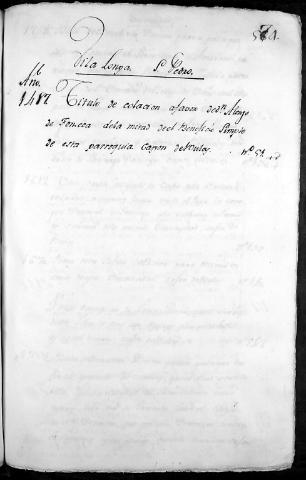 571.
Vila longa. S. Pedro.
Año.
1417 Titulo de colacion afavor de Dn. Alonzo
de Fonseca dela mitad de el Beneficio Simple
de esta parroquia Cajon de Bulas. nº 51.